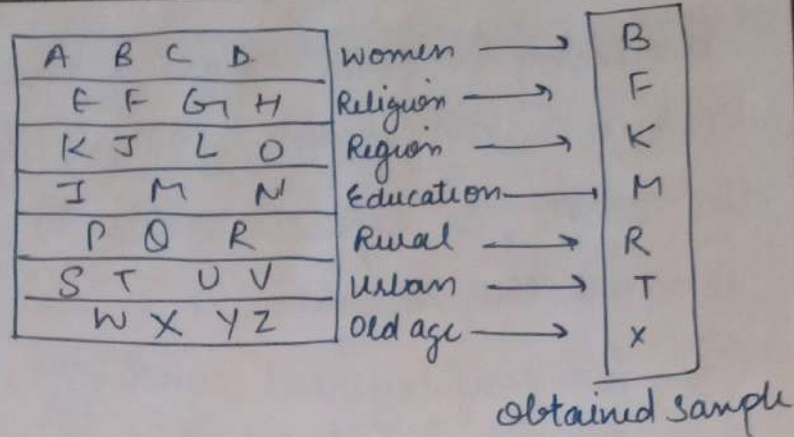 A B C D Women → B
E F G H Religion → F
K J L O Region → K
I M N Education → M
P Q R Rural → R
S T U V Urban → T
W X Y Z Old age → X
Obtained sample